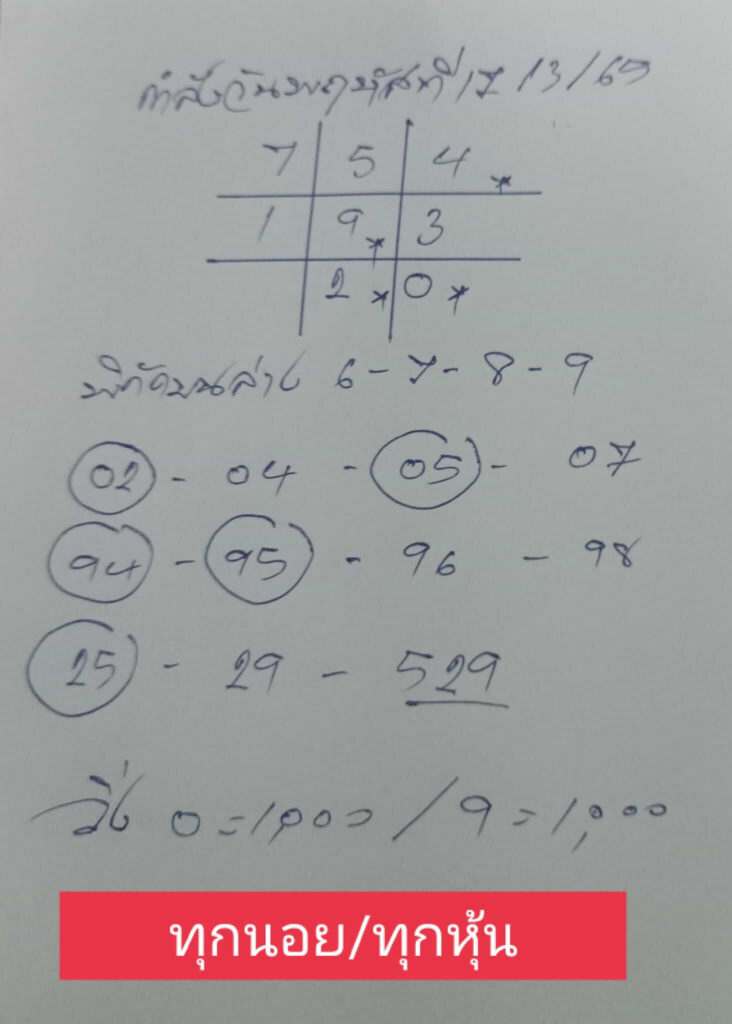 กำลังวันพฤหัสที่ 17/3/65
7 5 4*
1 9* 3
2* 0*
พิกัดบนล่าง 6-7-8-9
02 - 04 - 05 - 07
94 - 95 - 96 - 98
25 - 29 - 529
วิ่ง 0=1,000 / 9=1,000
ทุกนอย/ทุกหุ้น